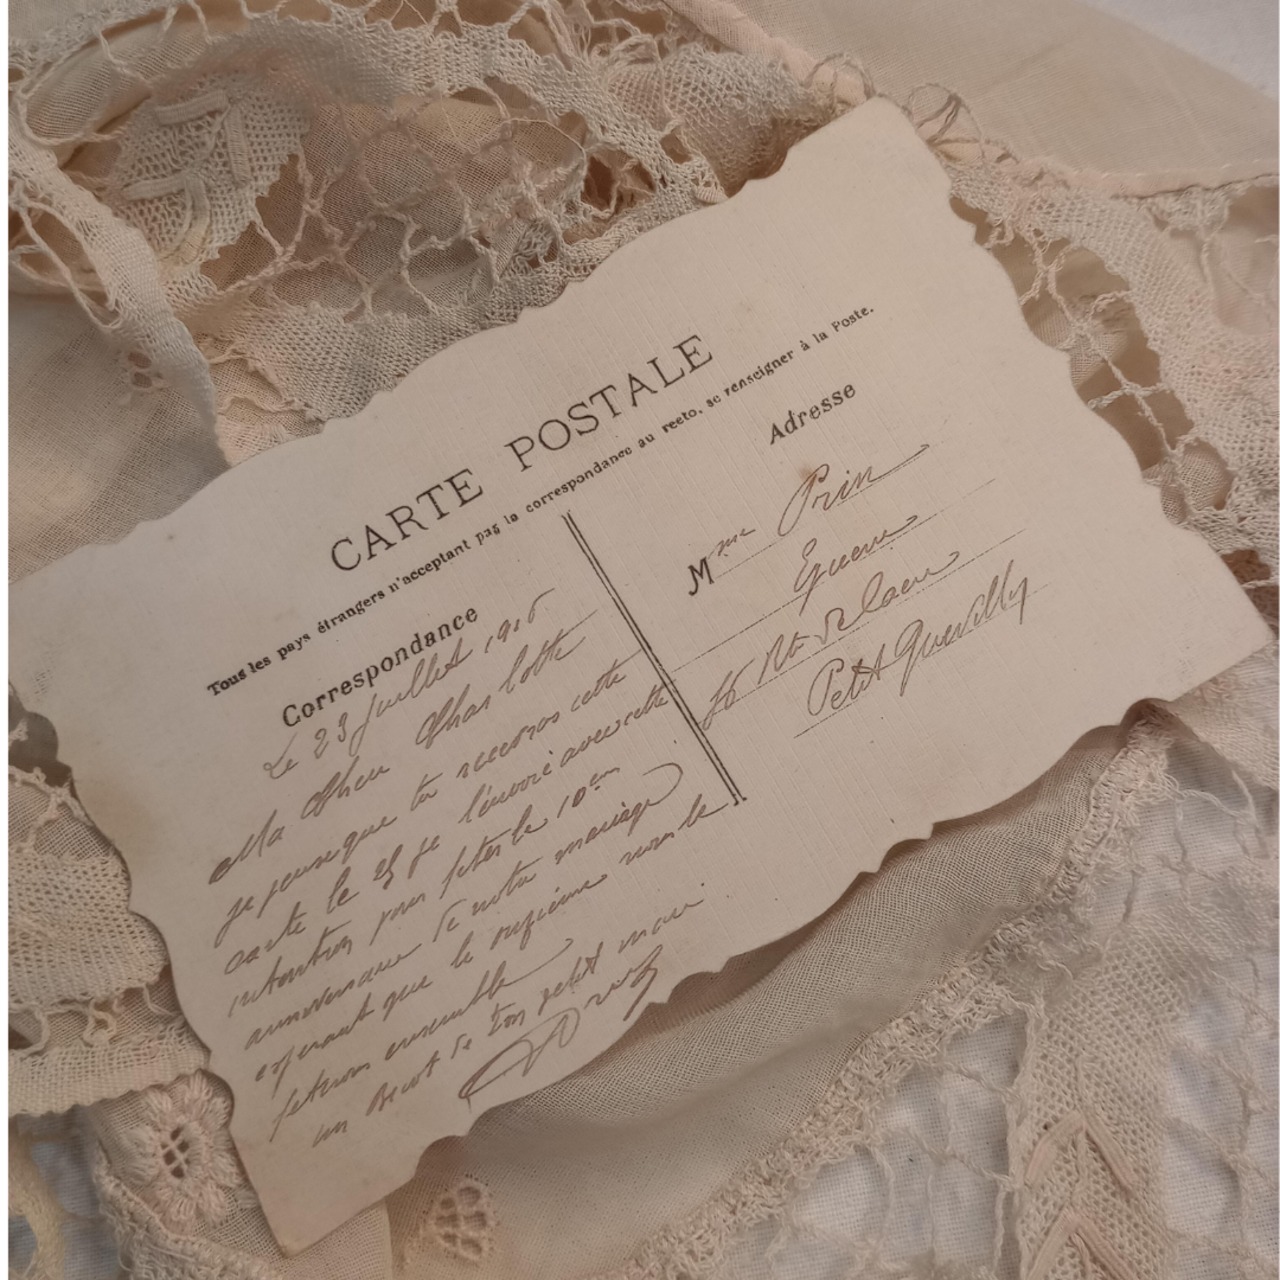 CARTE POSTALE
Tous les pays étrangers n'acceptant pas la correspondance au recto, se renseigner à la Poste.
Correspondance
Le 23 juillet 1916
Ma Cher Charlotte
je pense que tu recevras cette
carte le 25 je l'envoie avec cette
intention pour fêter le 10em
anniversaire de notre mariage
esperant que le onzieme nous le
feterons ensemble
un de ton petit mari
Adresse
Mme Prin
Petit Quevilly